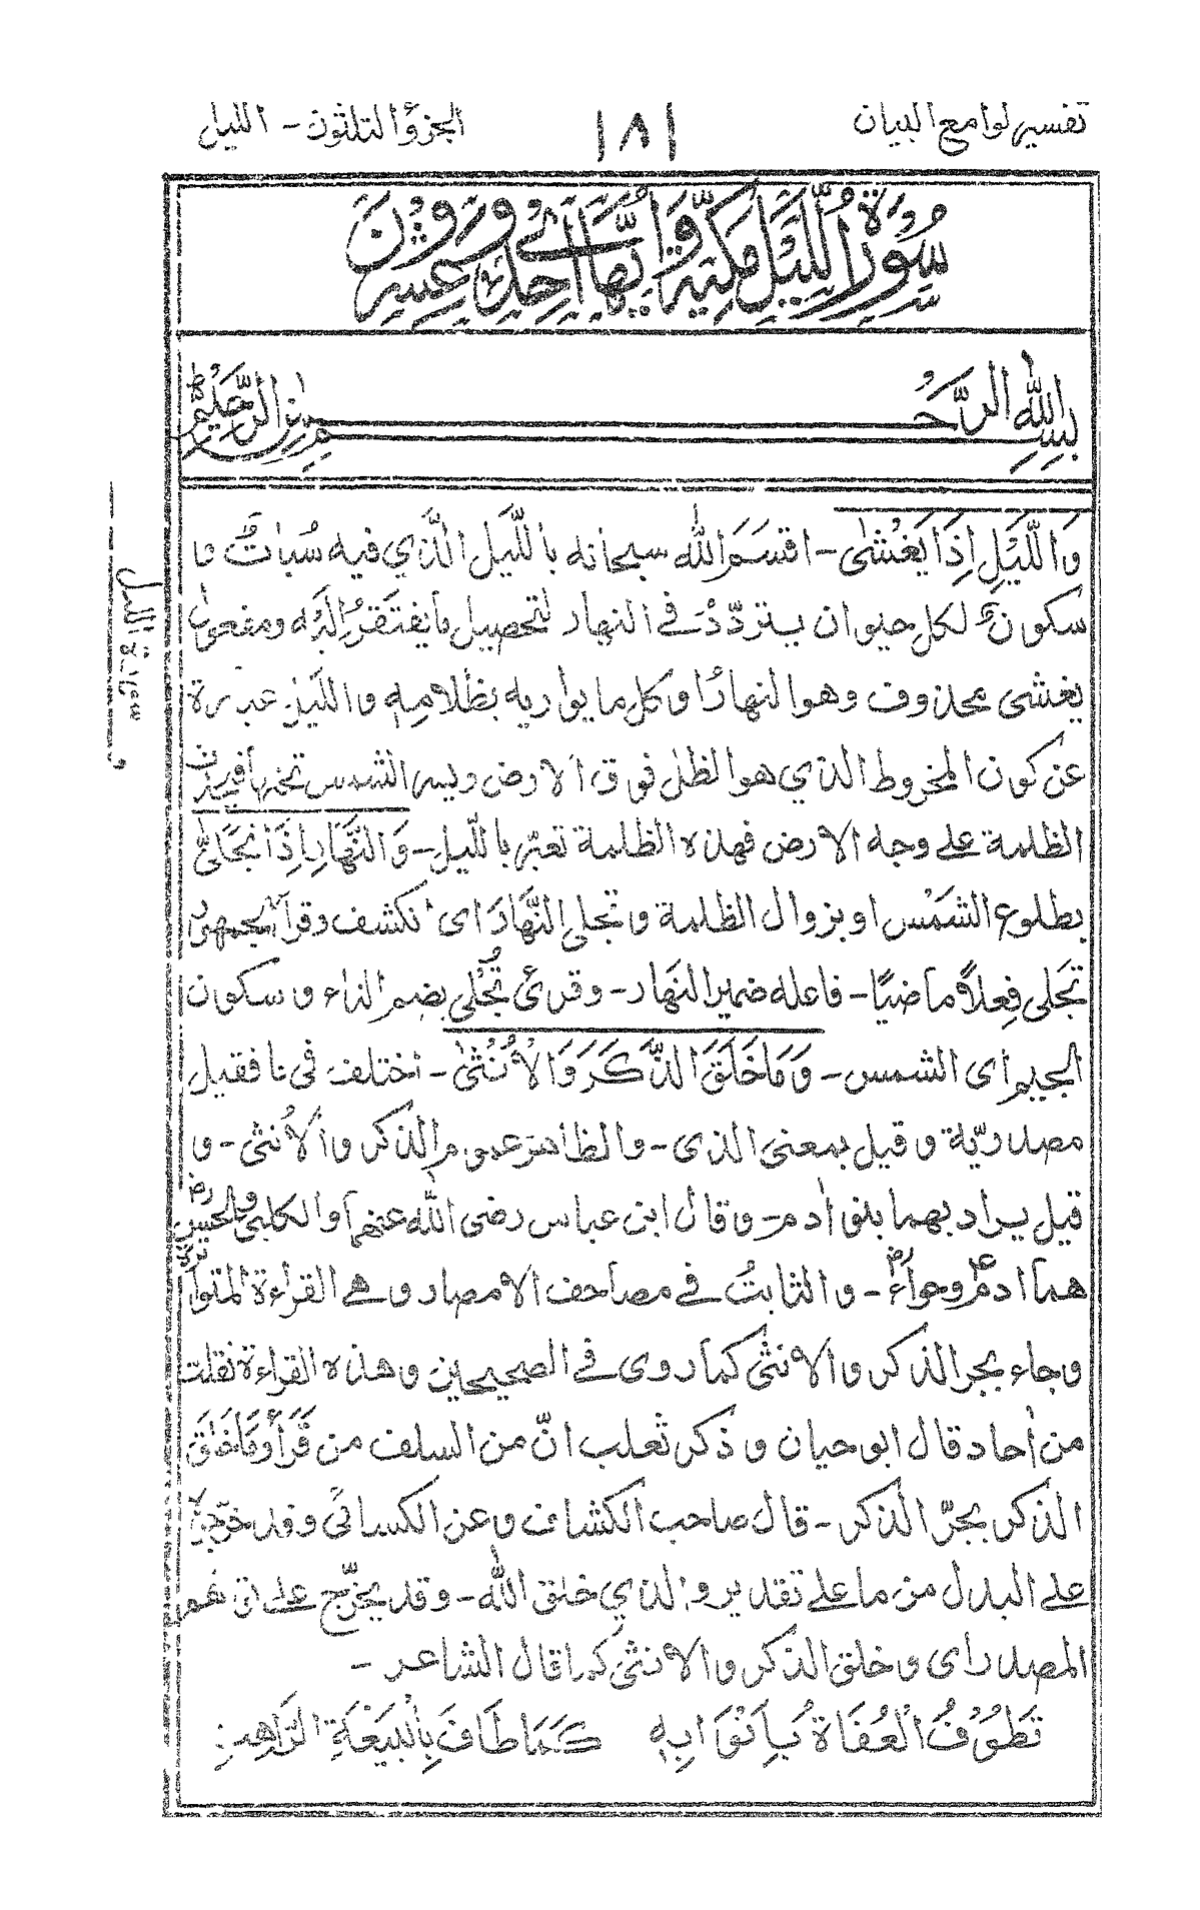 تفسير لوامع البيان
١٨١
الجزؤ الثلثون - الليل
سُورة الليل مكيّة وّ اٰياتها احدى وّ عشرون
بسم الله الرّحمٰن الرّحيم
وَالَّيْلِ اِذَا يَغْشٰى - اقسَمَ الله سبحانه بالَّيل الَّذي فيه سُباتٌ و
سكونٌ لكل حيوان يتردّدُ في النهار لتحصيل ما يفتقرُ اليه ومفعول
يغشى محذوف وهو النهار او كل ما يواريه بظلامه والليل عبارة
عن كون المخروط الذي هو الظل فوق الارض ويسير الشمس تحتها فيحدث
الظلمة على وجه الارض فهذه الظلمة تعبّر بالليل - وَالنَّهَارِ اِذَا تَجَلّٰى
بطلوع الشَمْس او بزوال الظلمة وتجلي النَّهار اى انكشف وقرأ الجمهور
تَجَلى فِعلاً ماضيًا - فاعله ضمير النهار - وقرئ تُجْلى بضم التاء وسكون
الجيم اى الشمس - وَمَا خَلَقَ الذَّكَرَ وَالْاُنْثٰى - اختلف في ما فقيل
مصدريّة وقيل بمعنى الذى - والظاهر عموم الذكر والأنثى - و
قيل يراد بهما بنو اٰدم - وقال ابن عباس رضى الله عنهما والكلبي والحسن
هما اٰدم وحواء - والثابتُ في مصاحف الامصار وهي القراءة المتواترة
وجاء بجر الذكر والانثى كما روى في الصحيحين وهذه القراءة نقلت
من اٰحاد قال ابو حيان وذكر ثعلب انّ من السلف من قَرَأَ وَمَا خَلَقَ
الذكر بجرّ الذكر - قال صاحب الكشاف وعن الكسائى وقد خرّجوه
على البدل من ما على تقدير والذي خلق الله - وقد يخرّج على توهم
المصدر اى وخلق الذكر والانثى كما قال الشاعر -
تَطُوْفُ الْعُفَاةُ بِاَبْوَابِهٖ كَمَا طَافَ بِالْبَيْعَةِ الرَّاهِبِ
سورة الليل